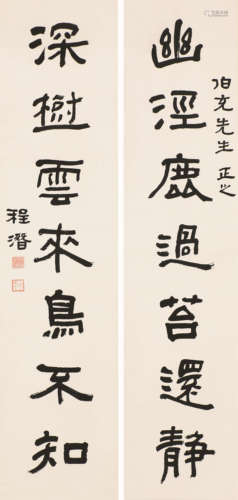 幽涇鹿過苔還靜
伯充先生 正之
深樹雲來鳥不知
程潛